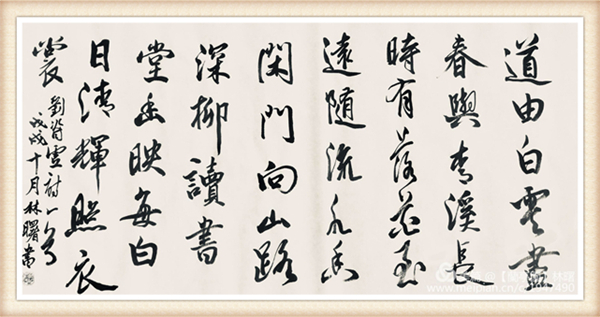 道由白雲盡
春與青溪長
時有落花至
遠隨流水香
閑門向山路
深柳讀書
堂幽映每白
日清輝照衣
裳
劉眘虛詩一首
戊戌十月林曙書